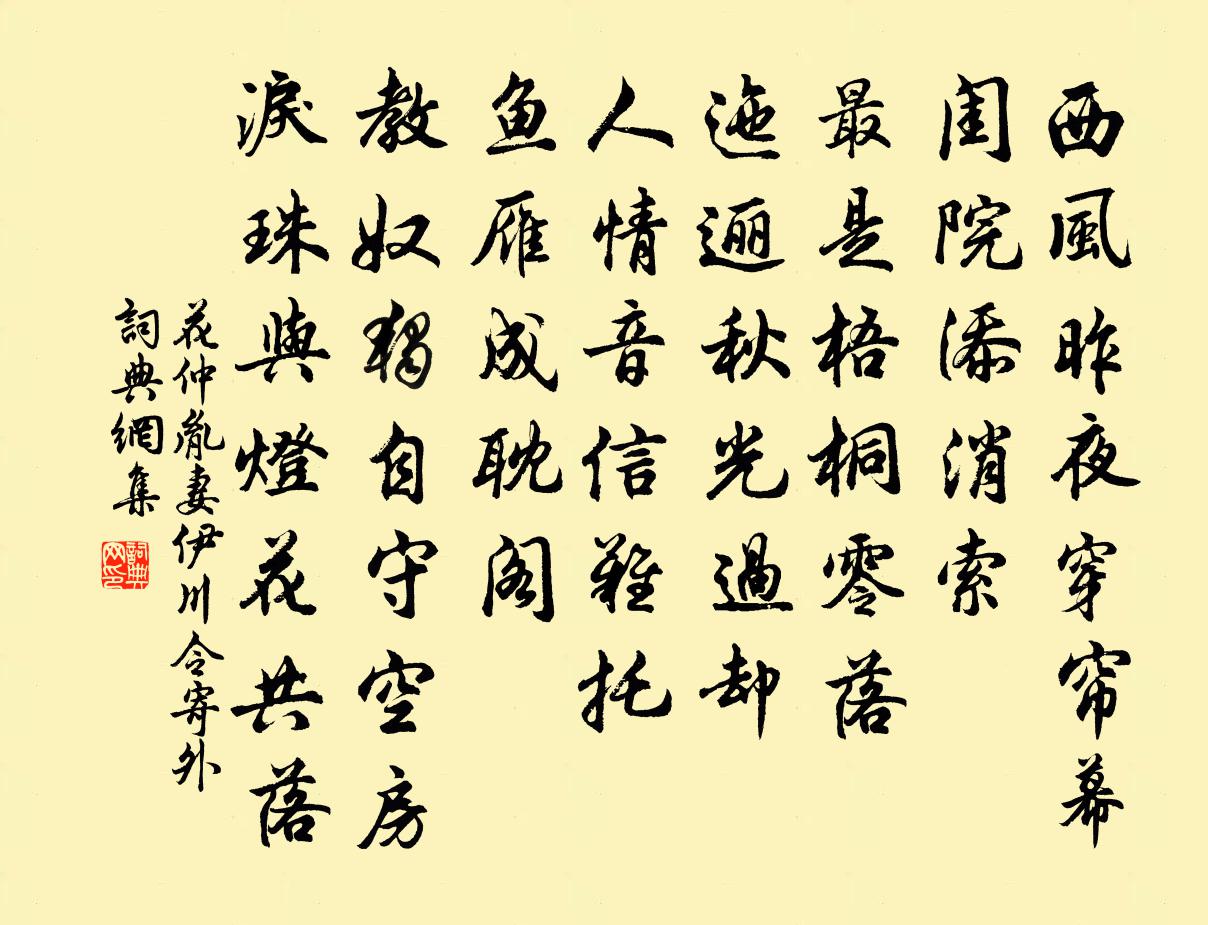 西風昨夜穿帘幕
闺院添消索
最是梧桐零落
迤逦秋光過却
人情音信難托
鱼雁成耽阁
教奴独自守空房
淚珠與燈花共落
花仲胤妻伊川令寄外
詞典網集
詞典网印